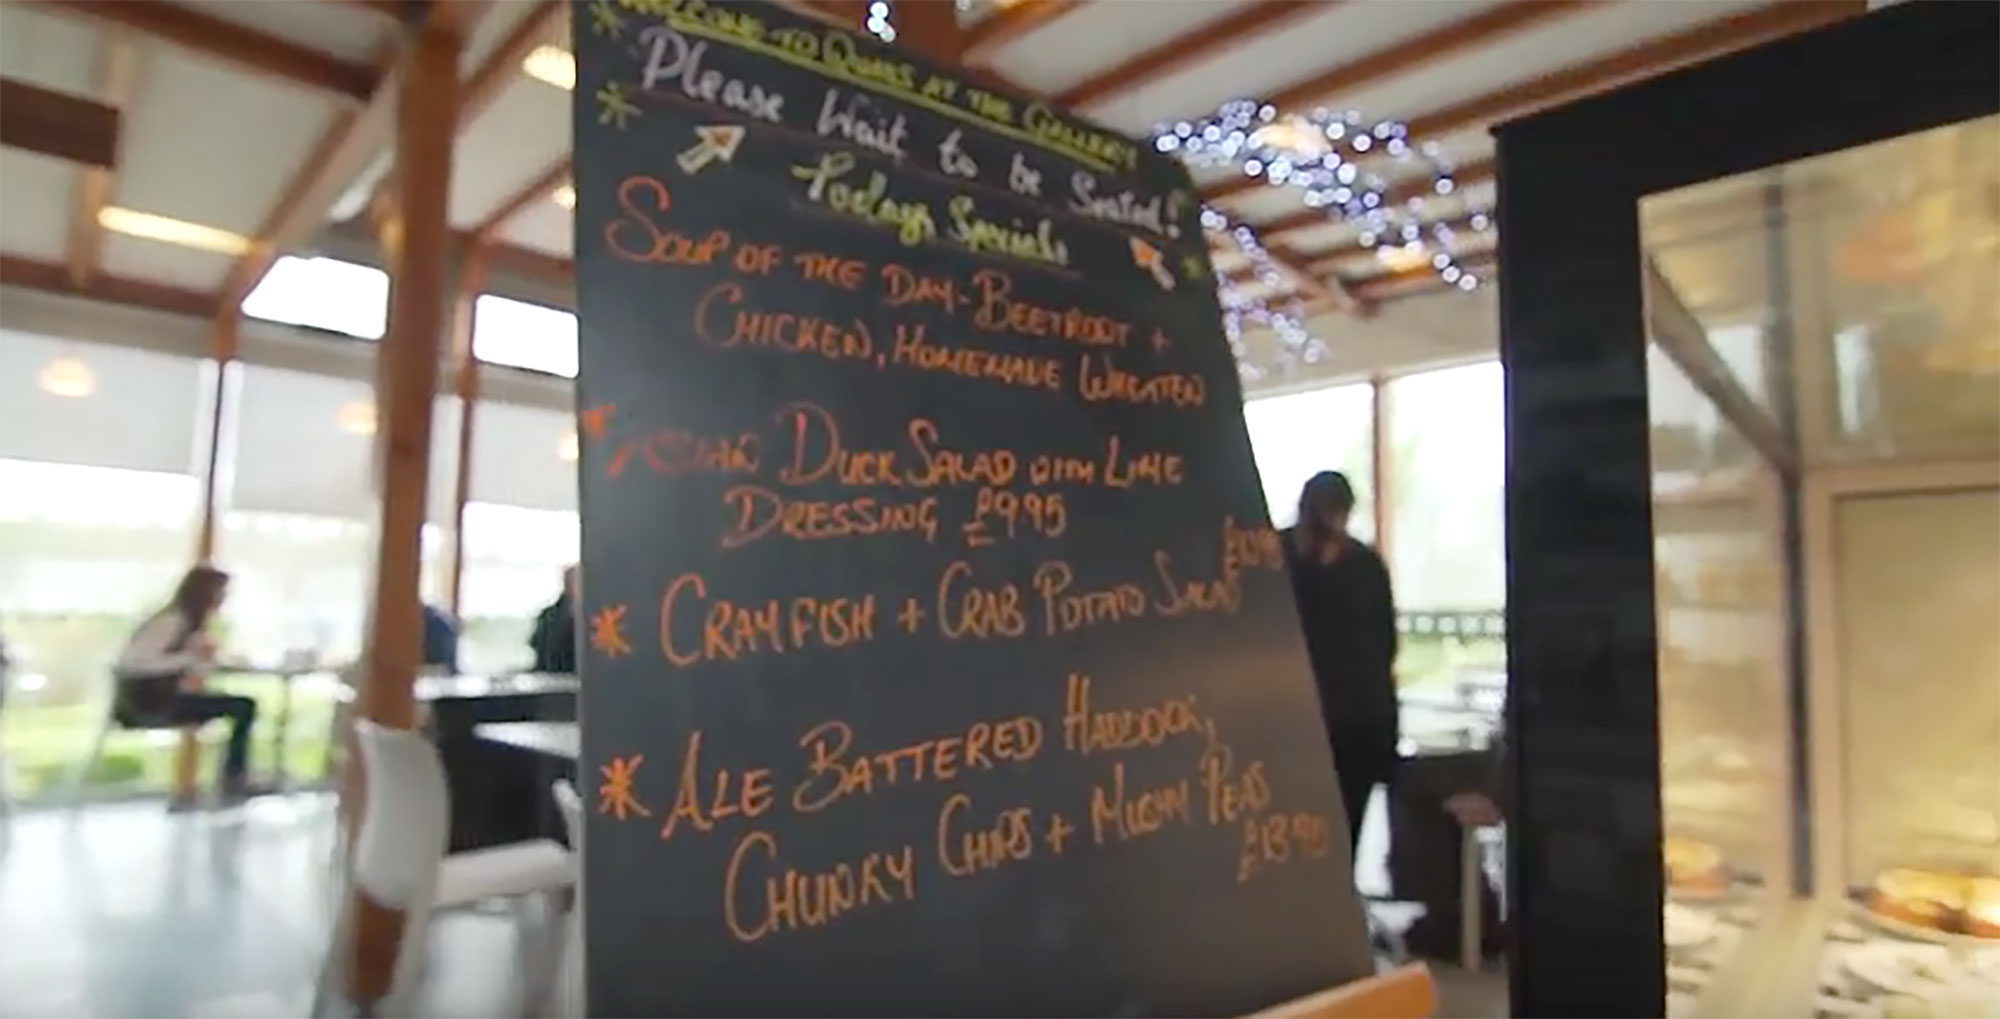 Welcome to Quails at the Gallery
Please Wait to be Seated!
Todays Specials
Soup of the Day - Beetroot +
Chicken, Homemade Wheaten
Asian Duck Salad with Lime
Dressing £9.95
Crayfish + Crab Potato Salad
Ale Battered Haddock,
Chunky Chips + Mushy Peas
£13.95